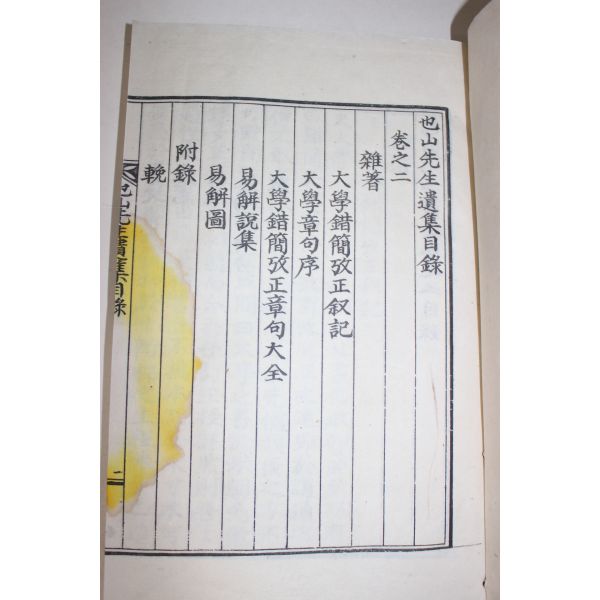 也山先生遺集目錄
卷之二
雜著
大學錯簡攷正叙記
大學章句序
大學錯簡攷正章句大全
易解說集
易解圖
附錄
輓
也山先生遺集目錄
一